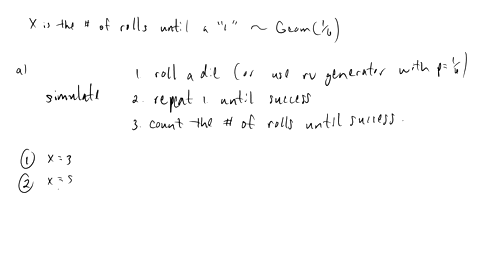 X is the # of rolls until a "1" ~ Geom(1/6)
a) 1 roll a die (or use rv generator with p=1/6)
simulate 2. repeat 1 until success
3. count the # of rolls until success.
① x = 3
② x = 5